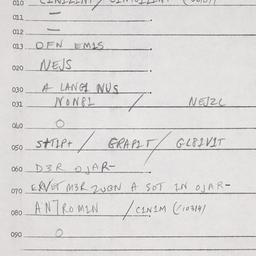 010
011 =
012 =
013 OFN EMIS
020 NEJS
030 A LANGI NUS
031 NON8I / NEJZL
040 O
050 S+TIP+ / GRAPIT / GL8IVIT
060 D3R OJAR-
070 M3R A SOT IN OJAR-
080 ANTROMIN / CINIM (/103/4/
090 O